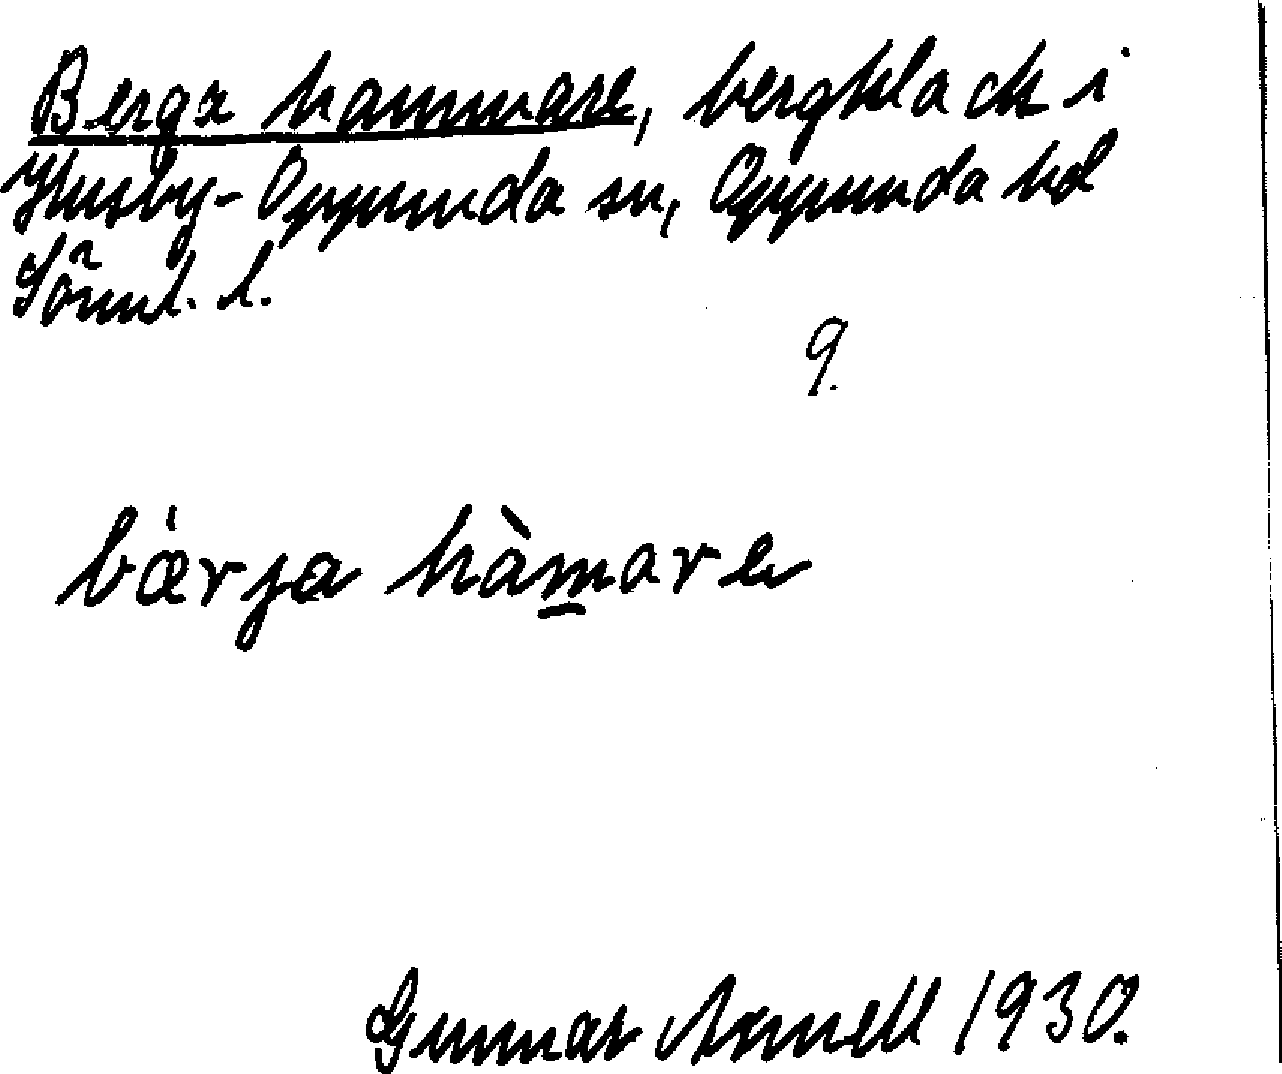 Berga hammare, bergklack i
Husby-Oppunda sn, Oppunda hd
Söml. l.
9.
bæ̀rja hàm̲are
Gunnar Arnell 1930.